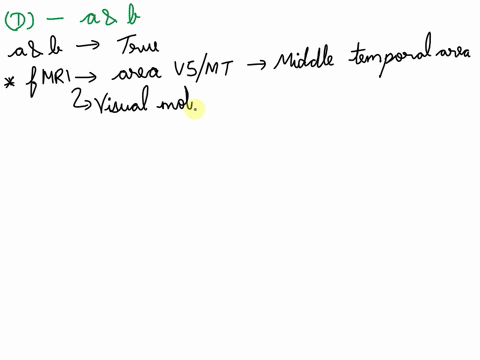 (D) - a & b
a & b → True
* fMRI → area V5/MT → Middle temporal area
↳ Visual mot